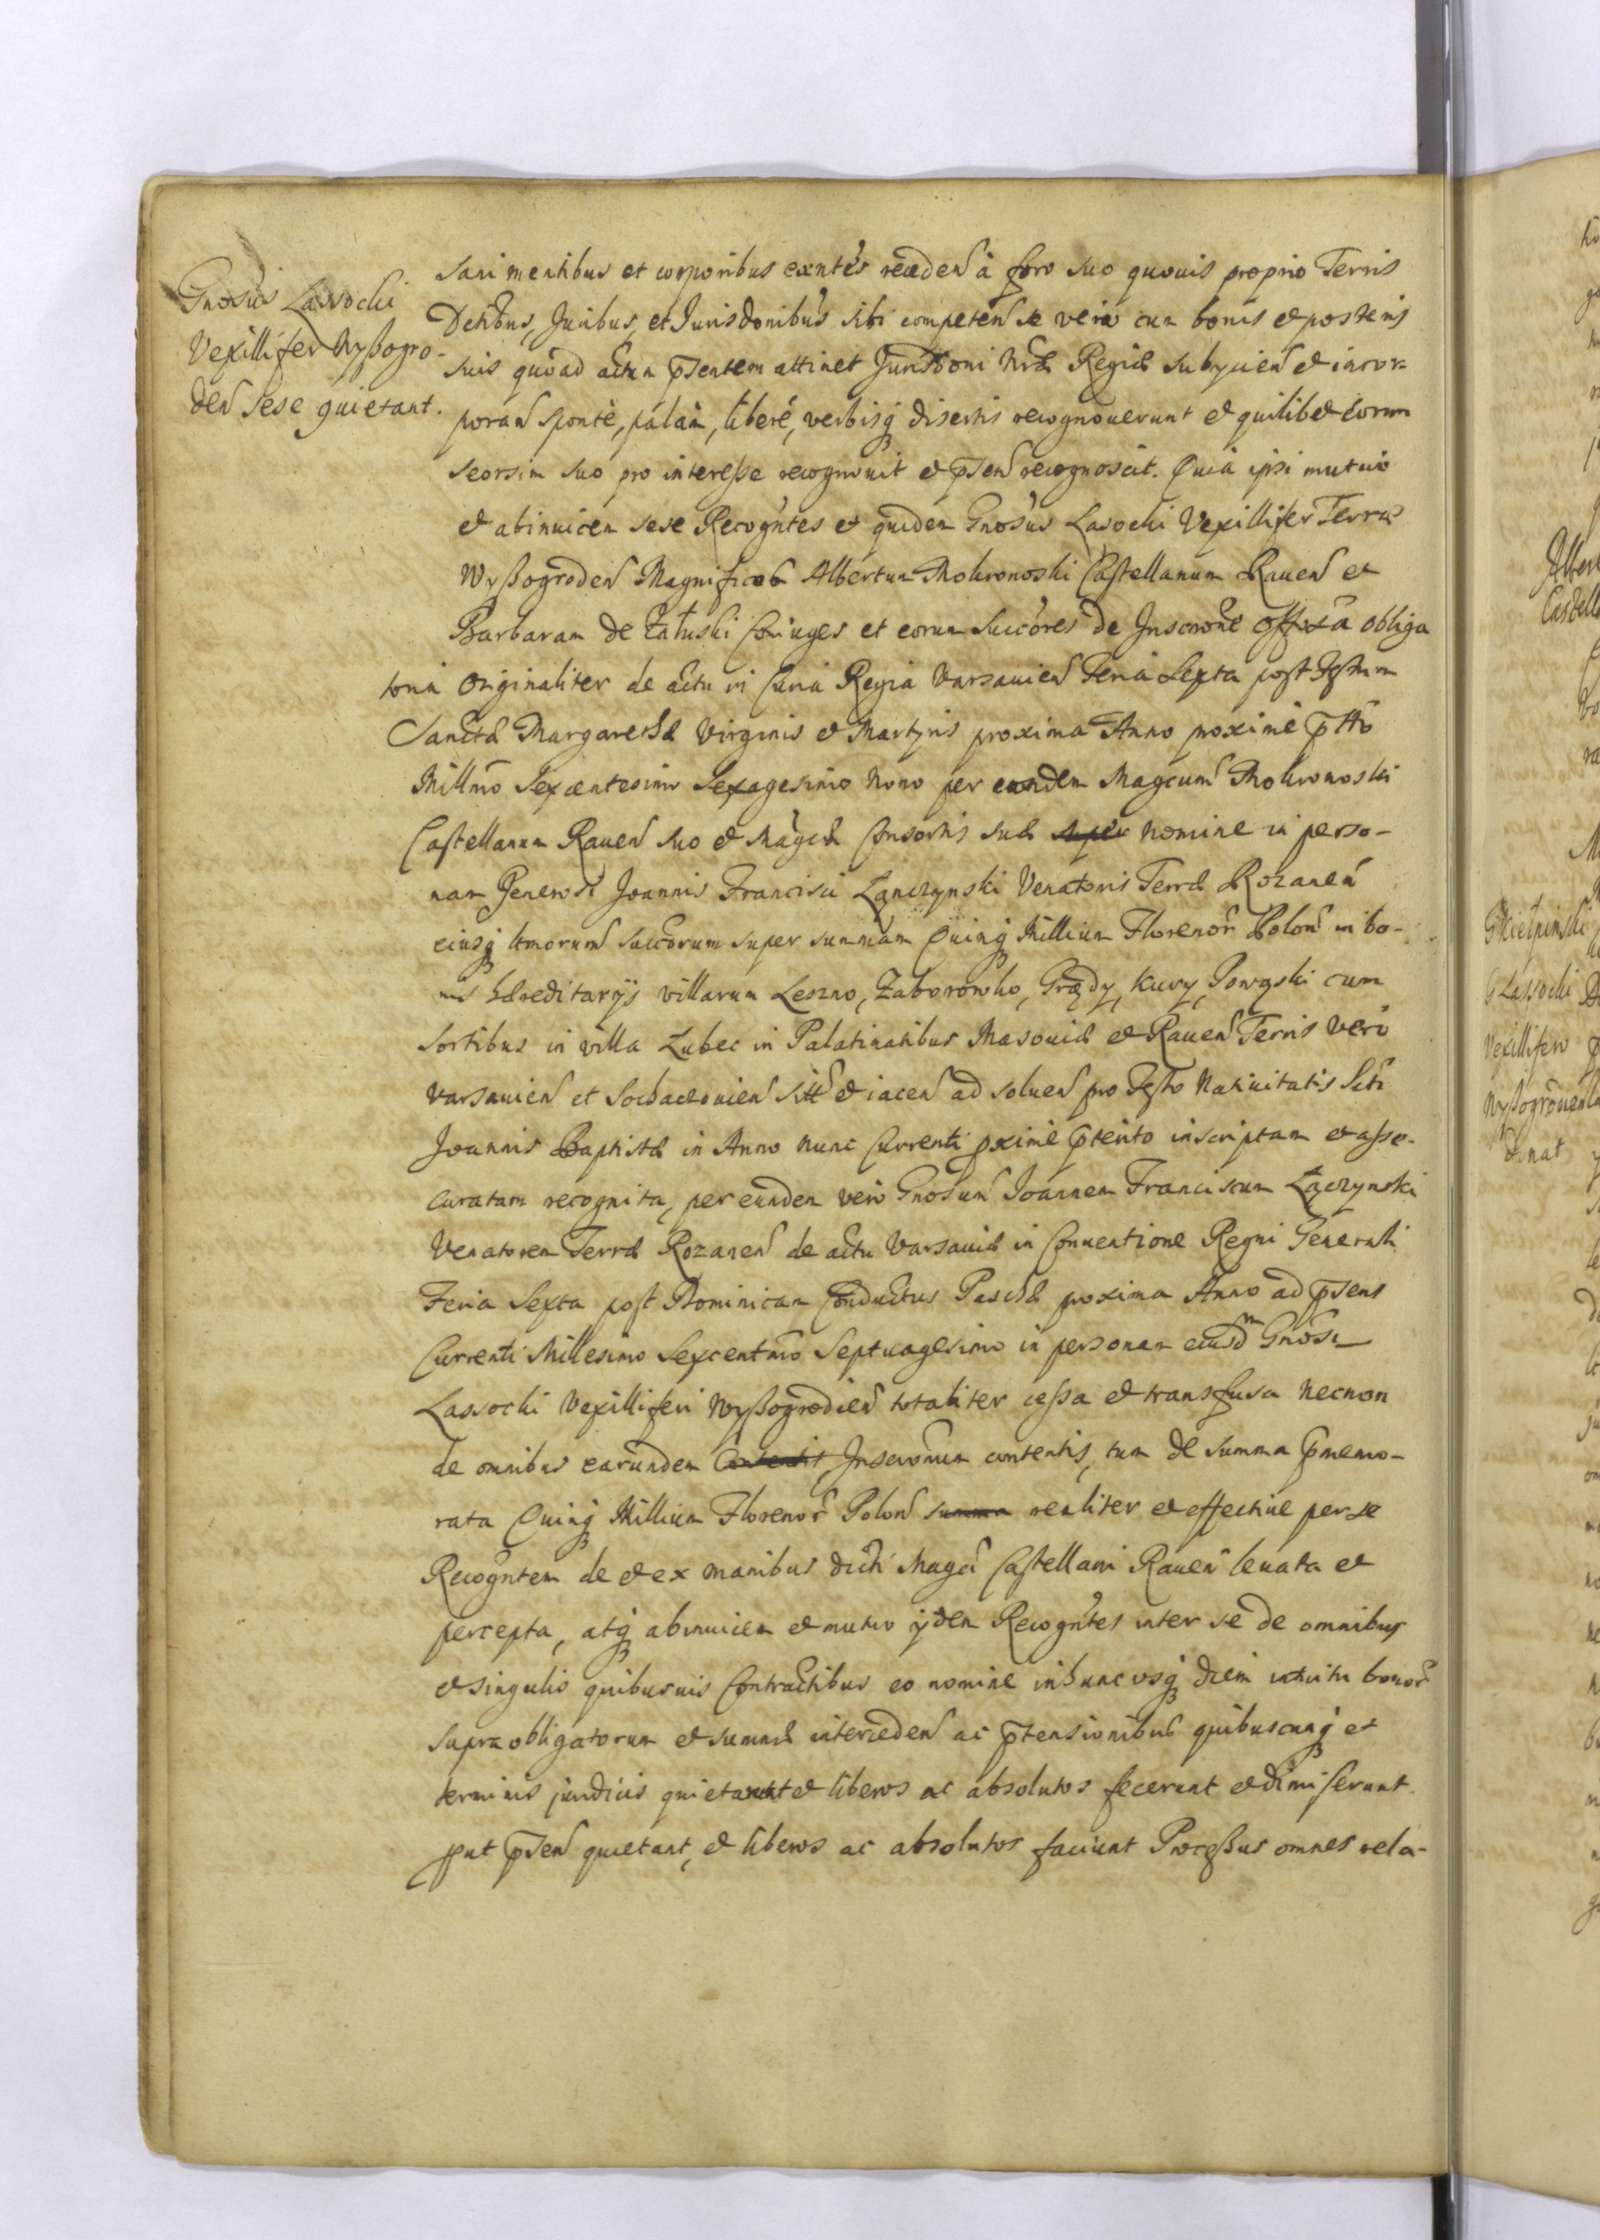 Gnosus Lassocki
Vexillifer Wyßogro-
den sese quietant.
sani mentibus et corporibus exntes receden à foro suo quouis proprio Terris
Dctibus, Juribus, et Jurisdonibus sibi competen se vero cum bonis et posteris
suis quoad actum pntem attinet Jurisdoni nrae Regiae subycien et incor-
poran sponte, palàm, liberè, verbisq disertis recognouerunt et quilibet eorum
seorsim suo pro interesse recognouit et pnsen recognoscit. Quia ipsi mutuo
et abinuicem sese Recogntes et quidem Gnosus Lasocki Vexillifer Terrae
Wyßogroden Magnificos Albertum Mokronoski Castellanum Rauen et
Barbaram de Załuski Coniuges et eorum succores de Inscrone obliga
toria originaliter de actu in Curia Regia Varsauien Feria Sexta post Festum
Sanctae Margarethae Virginis et Martyris proxima Anno proximè ptto
Millmo Sexcentesimo Sexagesimo Nono per eundem Magcum Mokronoski
Castellanum Rauen suo et Magcae Consortis suae super nomine in perso-
nam Generosi Joannis Francisci Łączynski Venatoris Terrae Rozanen
eiusq ltmorum succorum super summam Quinq Millium Florenor Polon in bo-
nis haereditarijs villarum Leszno, Zaborowko, Grądy, Kury, Powąski cum
sortibus in villa Zubec in Palatinatibus Masouiae et Rauen Terris Vero
Varsauien et Sochaczouien sitt et iacen ad soluen pro Festo Natiuitatis Scti
Joannis Baptistae in Anno nunc Currenti pximè pterito inscriptam et asse-
curatam recognita, per eundem vero Gnosum Joannem Franciscum Łączynski
Venatorem Terrae Rozanen de actu Varsauiae in Conuentione Regni Generali
Feria Sexta post Dominicam Conductus Paschae proxima Anno ad psens
Currenti Millesimo Sexcentmo Septuagesimo in personam eiusdm Gnosi
Lassocki Vexilliferi Wyßogrodien totaliter cessa et transfusa necnon
de omnibus earundem Contentis Inscronum contentis, tum de summa pmemo-
rata Quinq Millium Florenor Polon summa realiter et effectiue per se
Recogntem de et ex manibus dicti Magci Castellani Rauen leuata et
percepta, atq abinuicem et mutuo ijdem Recogntes inter se de omnibus
et singulis quibusuis Contractibus eo nomine in hunc usq diem intuitu bonor
supra obligatorum et summae interceden ac ptensionibus quibuscunq et
terminis judicijs quietarunt et liberos ac absolutos fecerunt et dimiserunt.
put psen quietant, et liberos ac absolutos faciunt Processus omnes rela-